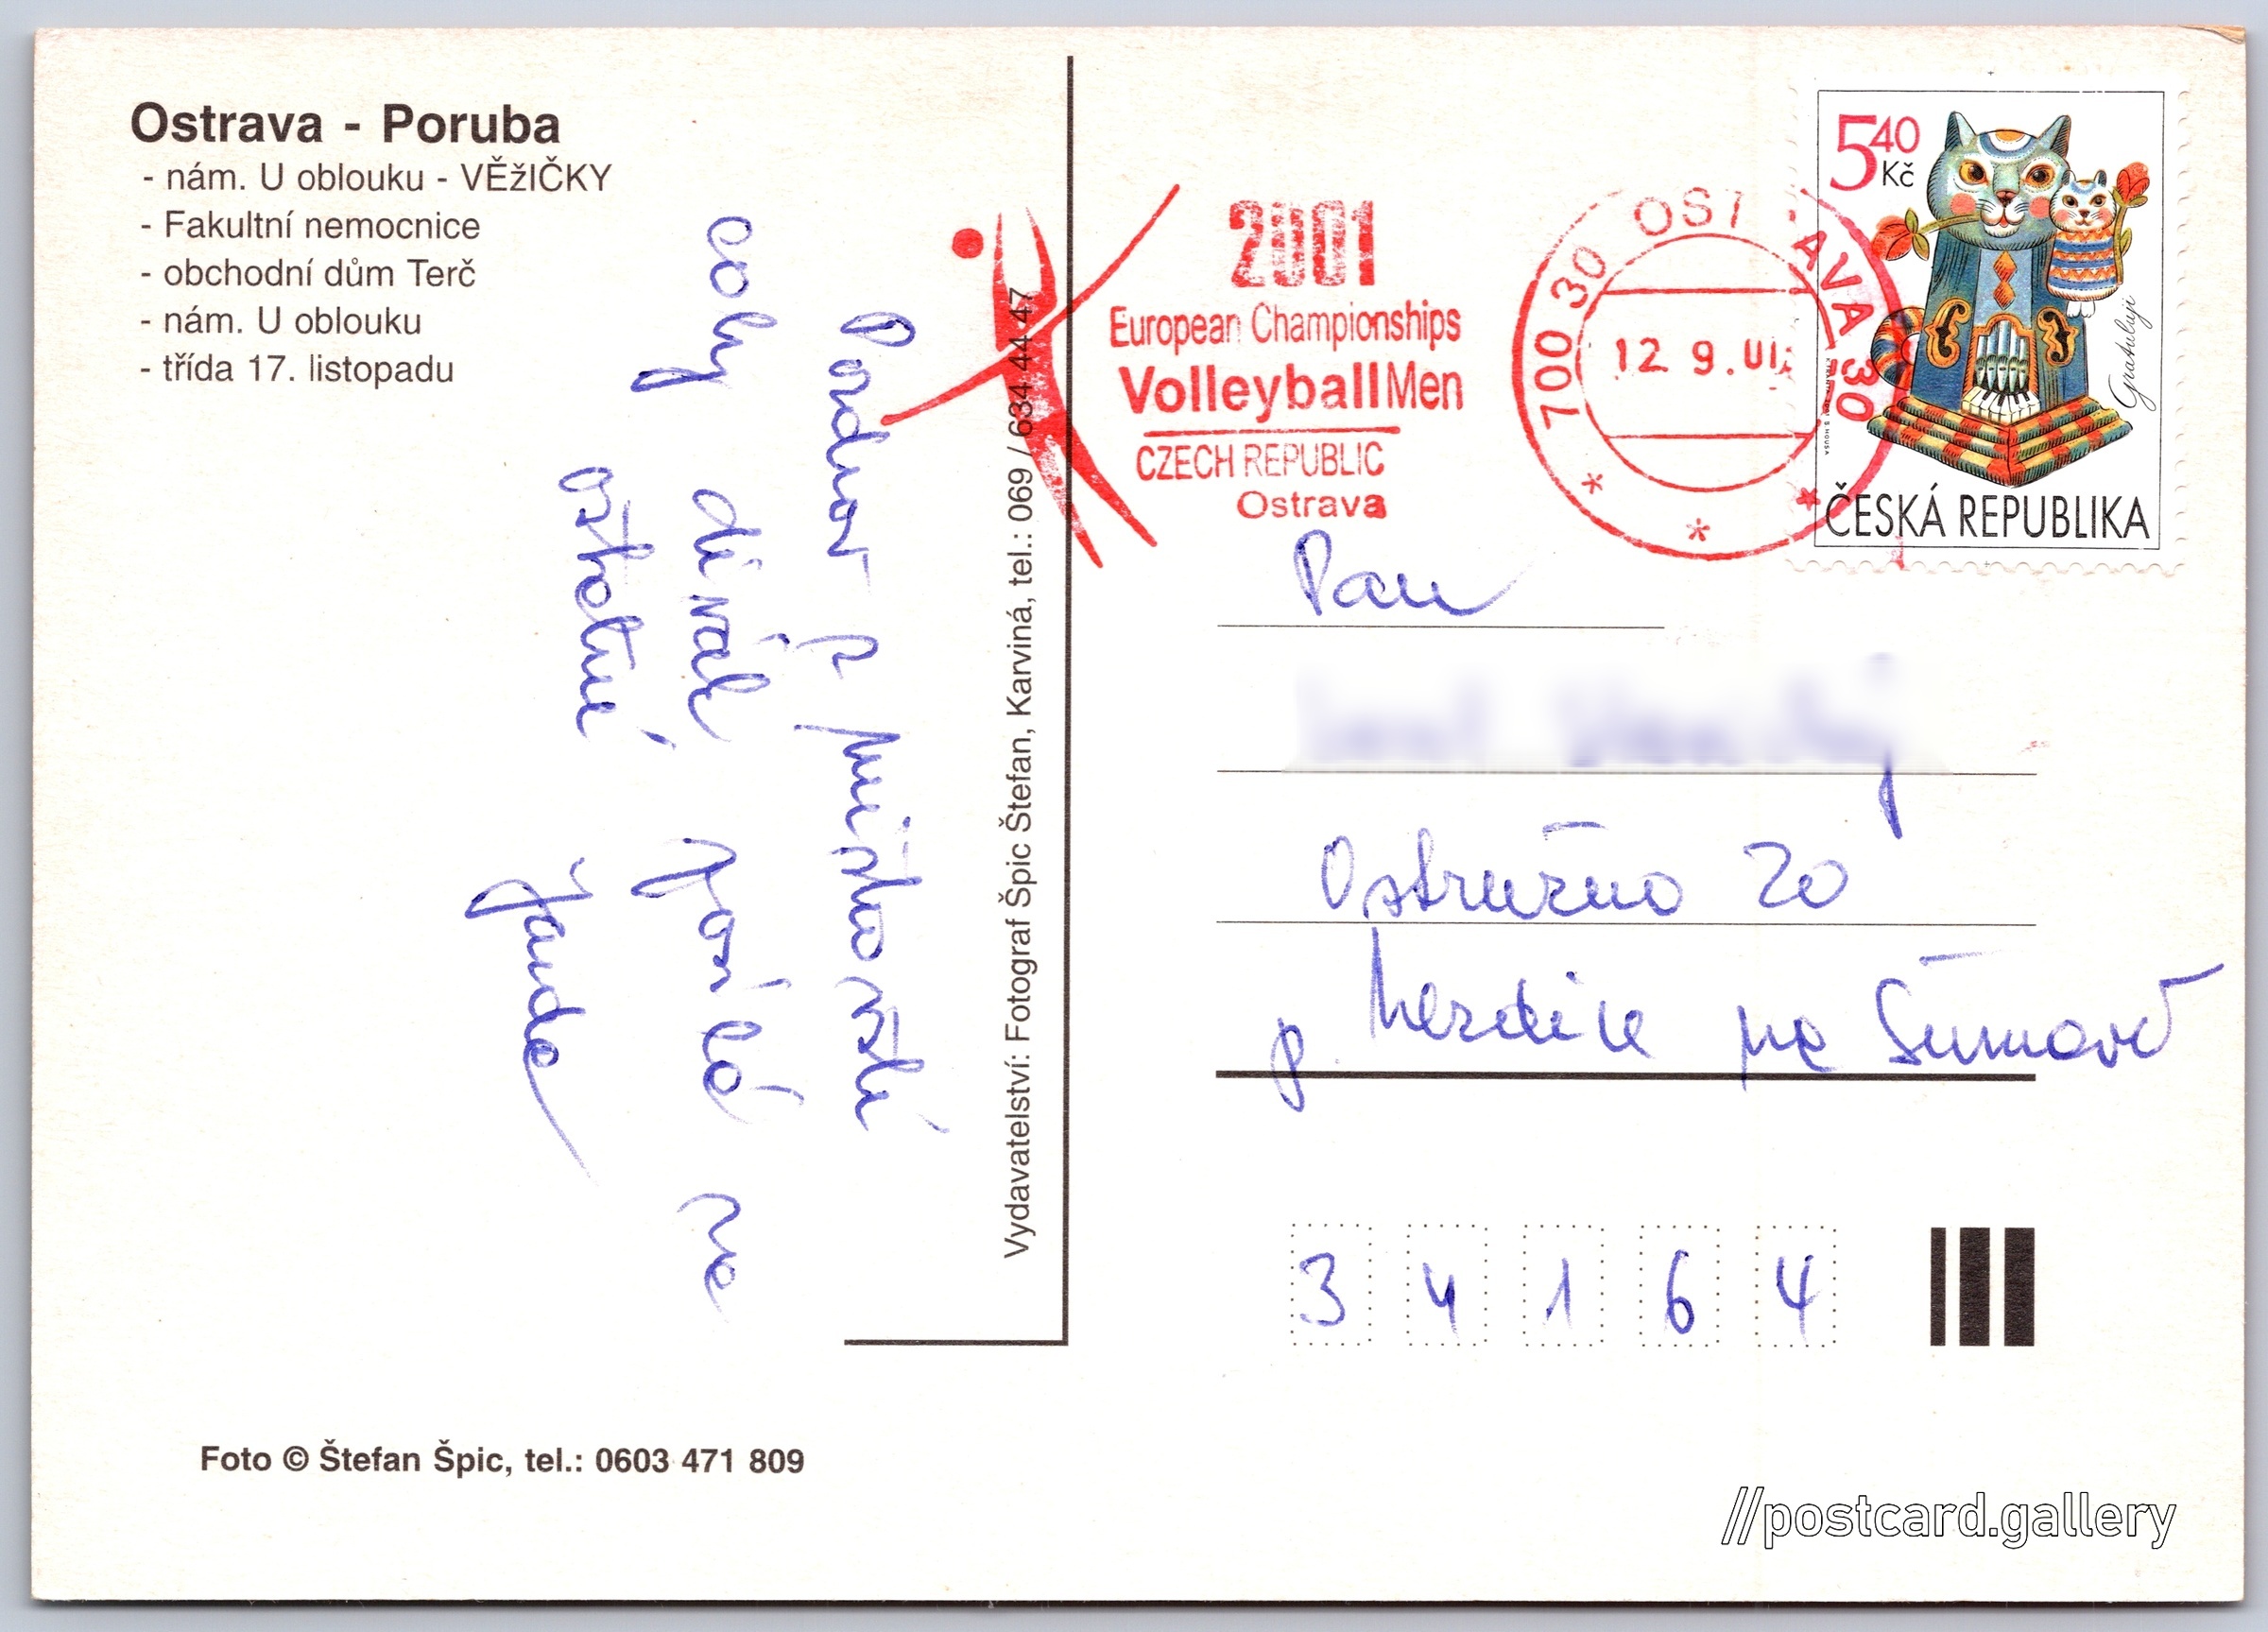 Ostrava - Poruba
- nám. U oblouku - VĚžIČKY
- Fakultní nemocnice
- obchodní dům Terč
- nám. U oblouku
- třída 17. listopadu
Pozdrav z mistrovství
coly divák posílá na
ostatní
Jande
Foto © Štefan Špic, tel.: 0603 471 809
Vydavatelství: Fotograf Špic Štefan, Karviná, tel.: 069 / 634 44 47
2001
European Championships
Volleyball Men
CZECH REPUBLIC
Ostrava
700 30 OSTRAVA 30
12 9.01
5 40
Kč
Gratuluji
ČESKÁ REPUBLIKA
Pan
Ostružno 20
p. Nezdice na Šumavě
3 4 1 6 4
//postcard.gallery